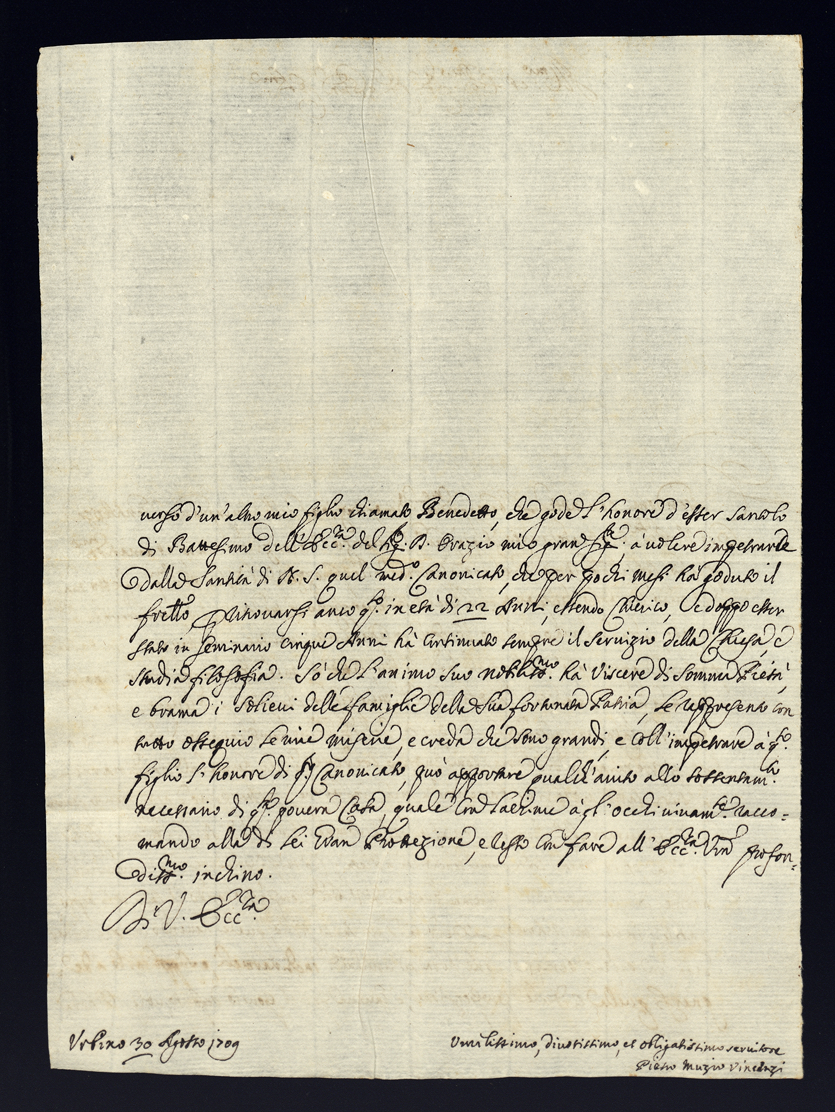 verso d'un'altro mio figlio chiamato Benedetto, che gode l'honore d'esser Santolo
di Battesimo dell'Ecc.ᵃ del Sig. D. Orazio mio gran Sig.ʳᵉ à volere impetrarle
dalla Santità di N. S. quel med.º Canonicato, che per pochi mesi hà goduto il
frello, ritrovarsi anco q.º in età di 22 Anni, essendo Chierico, e doppo esser
stato in Seminario Cinque Anni hà continuato sempre il servizio della Chiesa, e
studia filosofia. Sò che l'animo suo nobiliss.ᵐᵒ hà viscere di somma Pietà,
e brama i solievi delle famiglie della Sua fortunata Patria, le rappresento con
tutto ossequio le mie miserie, e creda che sono grandi, e coll'impetrare à q.ᵗᵒ
figlio l'honore di Canonicato, può apportare qualch'aiuto allo sostentam.ᵗᵒ
necessario di q.ᵗᵃ povera Casa, quale con lacrime à gl'occhi vivam.ᵗᵉ racco-
mando alla di Lei Gran Protezione, e resto con fare all'Ecc.ᶻᵃ Vrã profon-
diss.ᵐᵒ inchino.
Di V. Ecc.ᶻᵃ
Urbino 30 Agosto 1709
Umilissimo, divotissimo, et obligatissimo servitore
Pietro Muzio Vincenzi